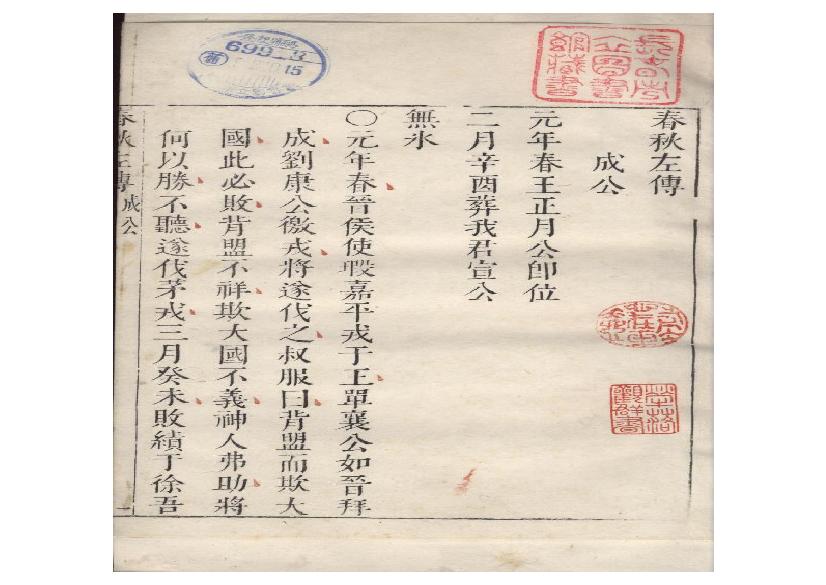 春秋左傳
成公
元年春王正月公卽位
二月辛酉葬我君宣公
無氷
〇元年春晉侯使瑕嘉平戎于王單襄公如晉拜
成劉康公徼戎將遂伐之叔服曰背盟而欺大
國此必敗背盟不祥欺大國不義神人弗助將
何以勝不聽遂伐茅戎三月癸未敗績于徐吾
春秋左傳 成公 一
699
15